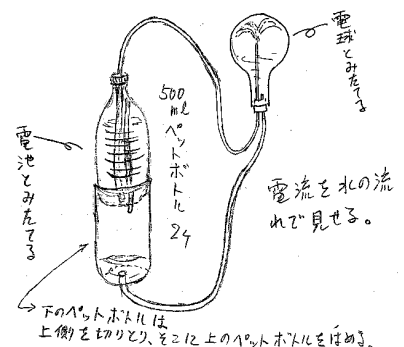 電球とみたてる
500
ml
ペットボトル
2ヶ
電池とみたてる
電流を水の流
れで見せる。
下のペットボトルは
上側を切りとり、そこに上のペットボトルをはめる。